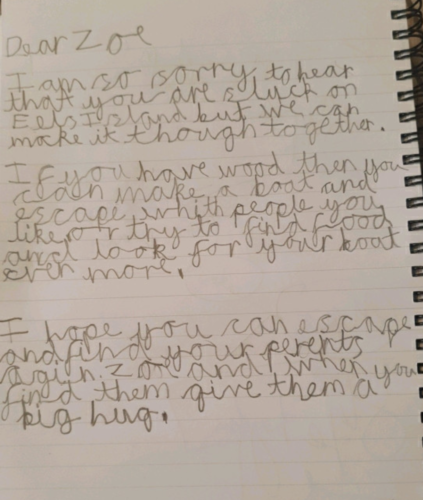 Dear Zoe
I am so sorry to hear
that you are stuck on
Eels Island but we can
make it though together.
If you have wood then you
can make a boat and
escape whith people you
like, or try to find food
and look for your boat
even more.
I hope you can escape
and find your perents
agin. Zoe and when you
find them give them a
big hug.